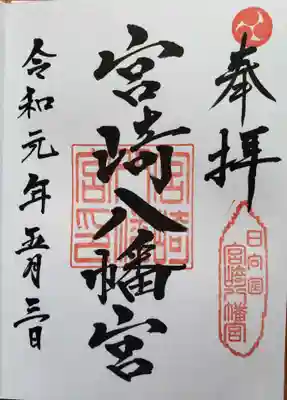 奉拝
日向国
宮崎八幡宮
宮崎八幡宮
令和元年五月三日